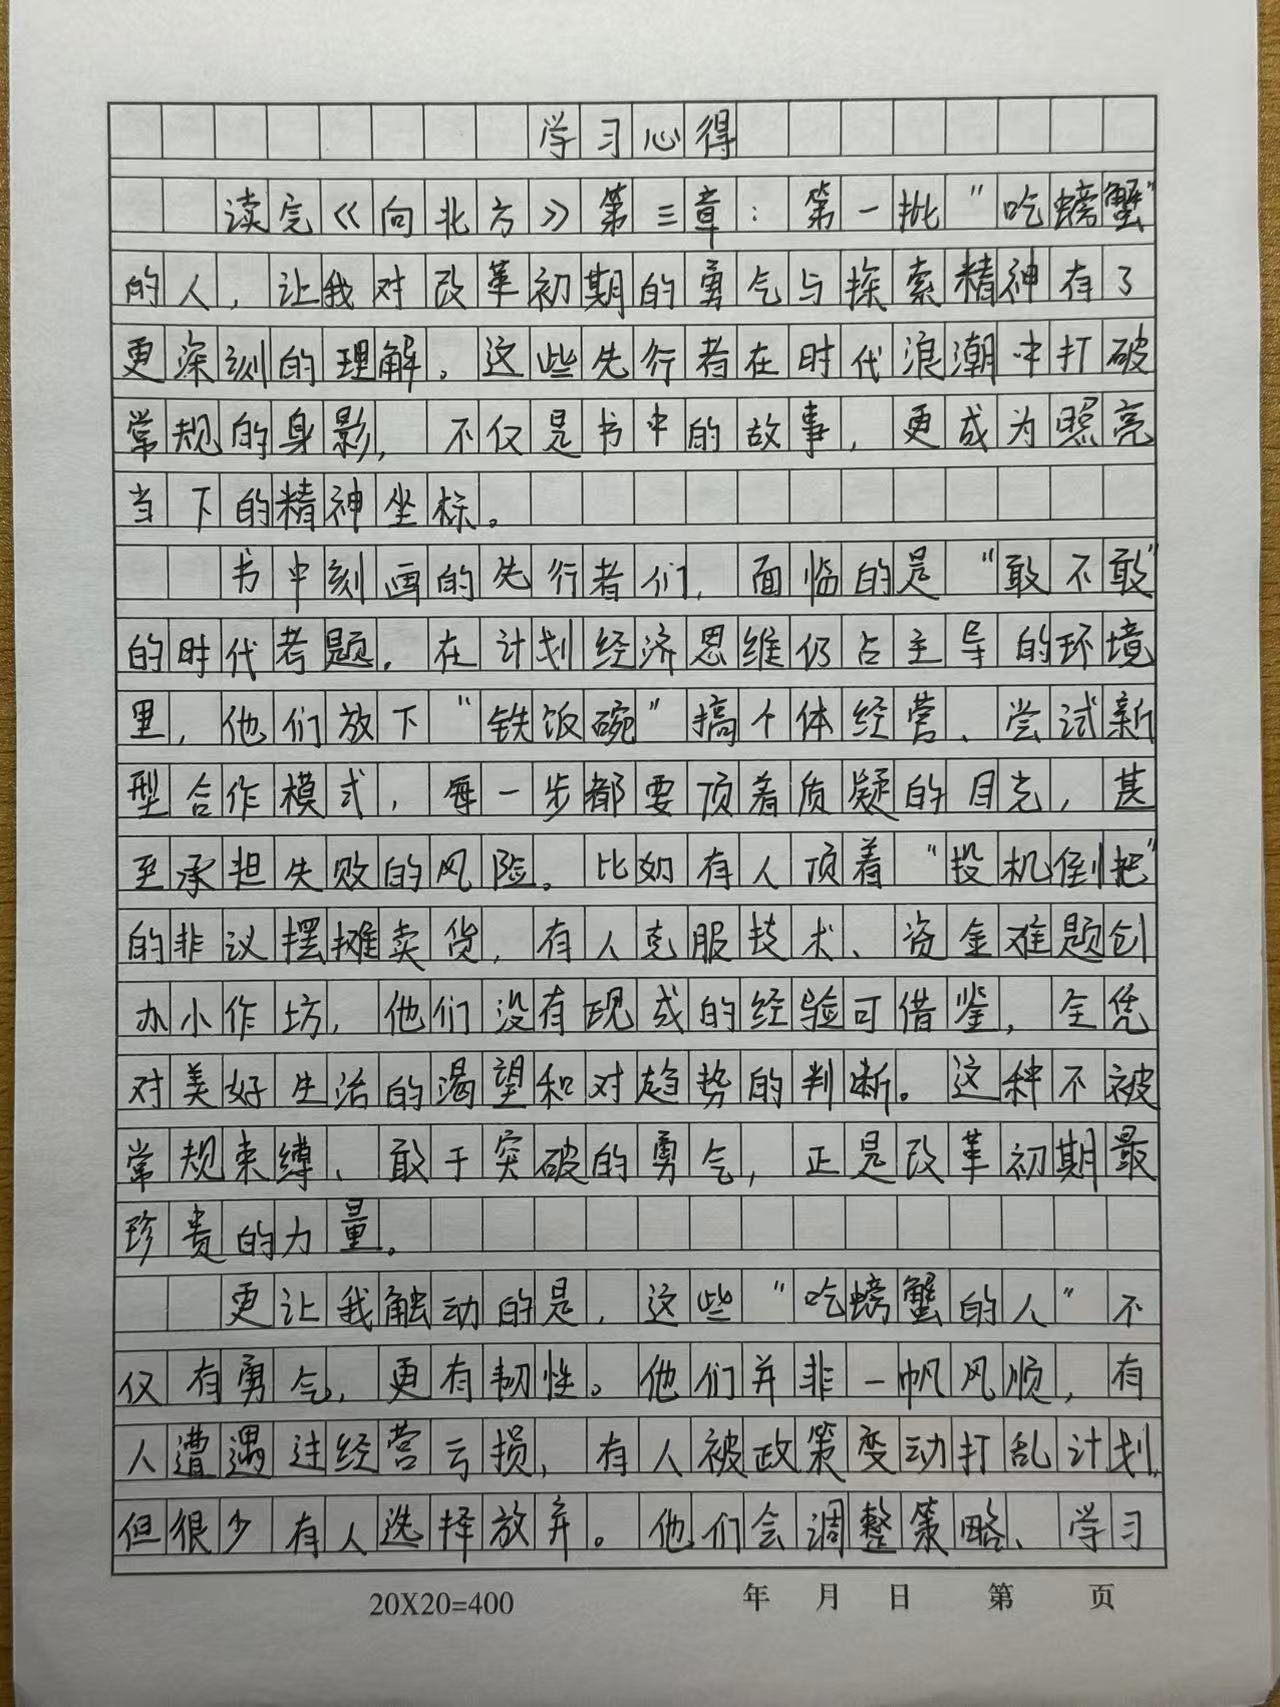 学习心得
读完《向北方》第三章：第一批“吃螃蟹”
的人，让我对改革初期的勇气与探索精神有了
更深刻的理解。这些先行者在时代浪潮中打破
常规的身影，不仅是书中的故事，更成为照亮
当下的精神坐标。
书中刻画的先行者们，面临的是“敢不敢”
的时代考题。在计划经济思维仍占主导的环境
里，他们放下“铁饭碗”搞个体经营、尝试新
型合作模式，每一步都要顶着质疑的目光，甚
至承担失败的风险。比如有人顶着“投机倒把”
的非议摆摊卖货，有人克服技术、资金难题创
办小作坊，他们没有现成的经验可借鉴，全凭
对美好生活的渴望和对趋势的判断。这种不被
常规束缚、敢于突破的勇气，正是改革初期最
珍贵的力量。
更让我触动的是，这些“吃螃蟹的人”不
仅有勇气，更有韧性。他们并非一帆风顺，有
人遭遇过经营亏损，有人被政策变动打乱计划，
但很少有人选择放弃。他们会调整策略、学习
20X20=400 年 月 日 第 页